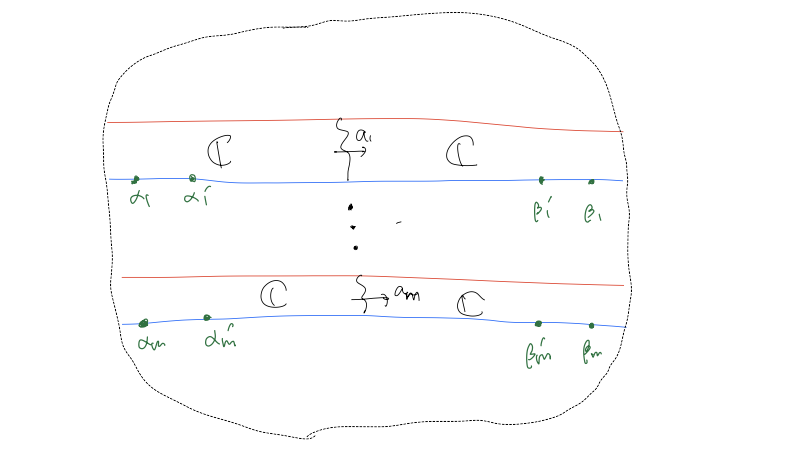 ℂ a₁ ℂ
α₁ α₁′ β₁′ β₁
ℂ aₘ ℂ
αₘ αₘ′ βₘ′ βₘ